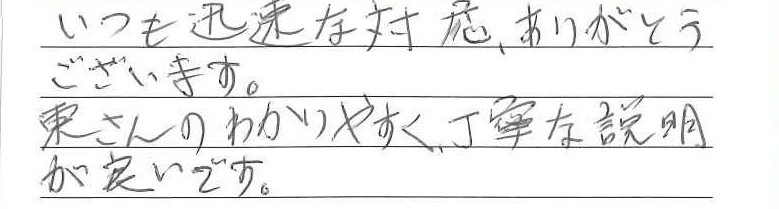 いつも迅速な対応、ありがとう
ございます。
東さんのわかりやすく、丁寧な説明
が良いです。